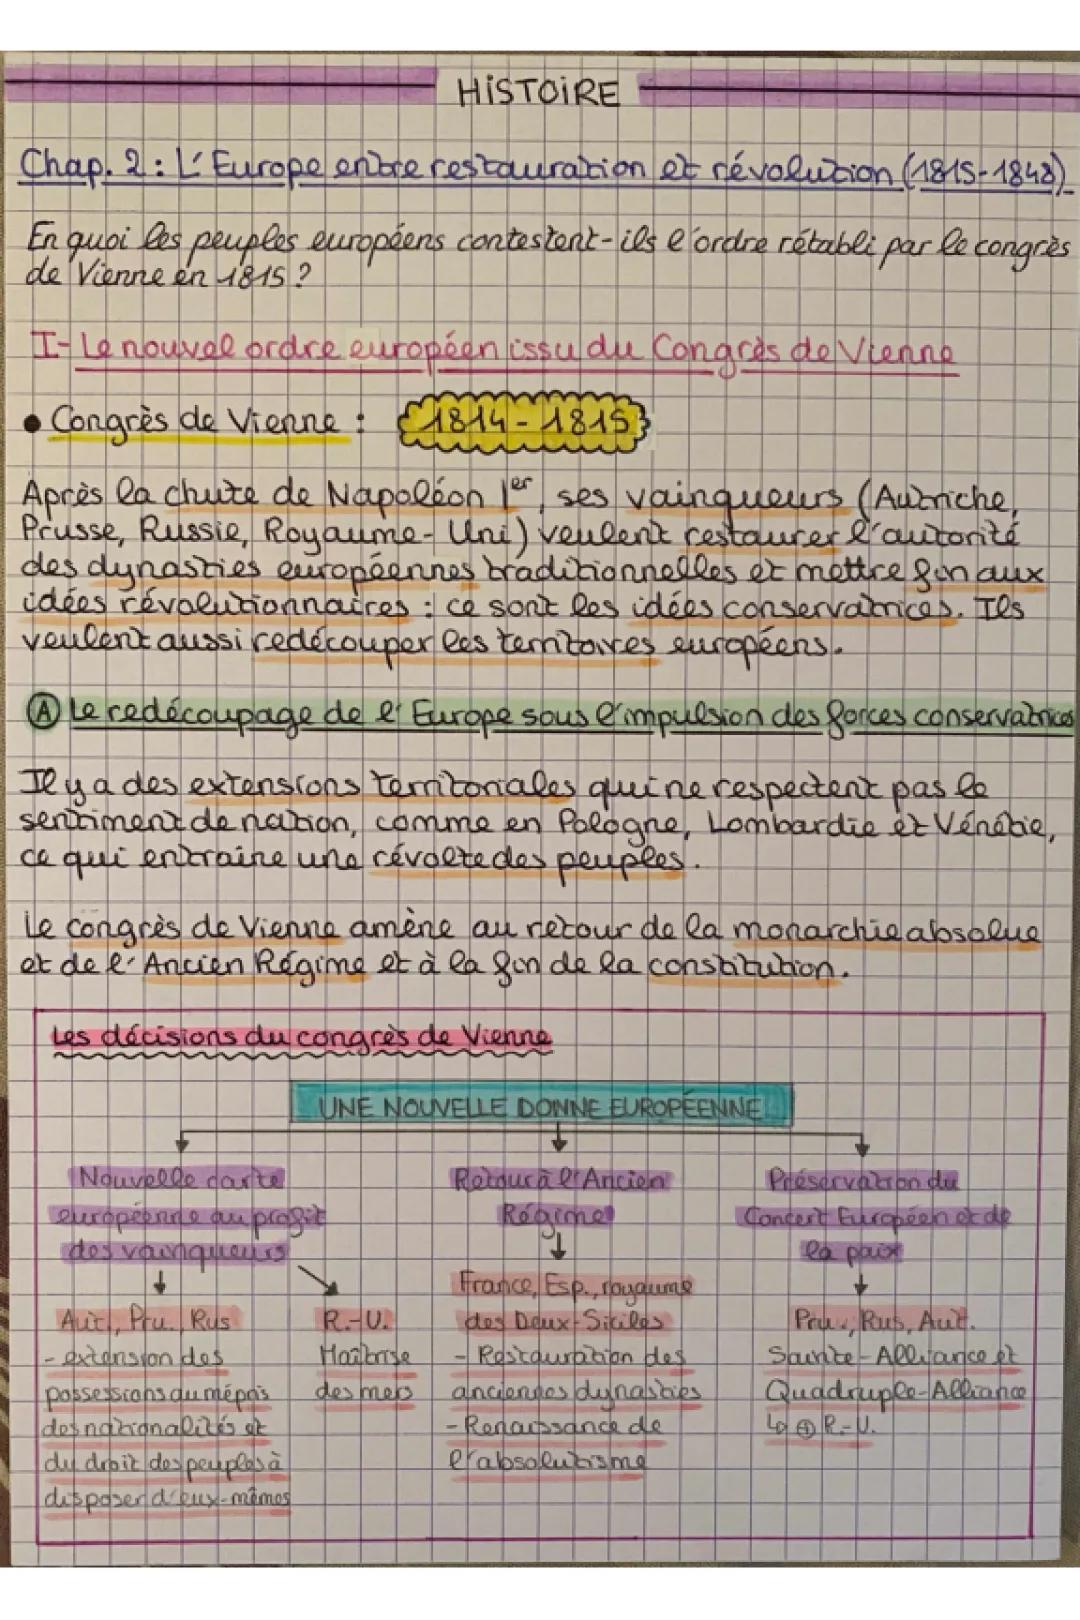 HISTOIRE
Chap. 2 : L'Europe entre restauration et révolution (1815-1848)
En quoi les peuples européens contestent-ils l'ordre rétabli par le congrès
de Vienne en 1815 ?
I- Le nouvel ordre européen issu du Congrès de Vienne
• Congrès de Vienne : 1814 - 1815
Après la chute de Napoléon 1er, ses vainqueurs (Autriche,
Prusse, Russie, Royaume-Uni) veulent restaurer l'autorité
des dynasties européennes traditionnelles et mettre fin aux
idées révolutionnaires : ce sont les idées conservatrices. Ils
veulent aussi redécouper les territoires européens.
A Le redécoupage de l'Europe sous l'impulsion des forces conservatrices
Il y a des extensions territoriales qui ne respectent pas le
sentiment de nation, comme en Pologne, Lombardie et Vénétie,
ce qui entraine une révolte des peuples.
Le congrès de Vienne amène au retour de la monarchie absolue
et de l'Ancien Régime et à la fin de la constitution.
Les décisions du congrès de Vienne
UNE NOUVELLE DONNE EUROPÉENNE
Nouvelle carte
européenne au profit
des vainqueurs
Aut., Pru., Rus
- extension des
possessions au mépris
des nationalités et
du droit des peuples à
disposer d'eux-mêmes
R.-U.
Maîtrise
des mers
Retour à l'Ancien
Régime
France, Esp., royaume
des Deux-Siciles
- Restauration des
anciennes dynasties
- Renaissance de
l'absolutisme
Préservation du
Concert Européen et de
la paix
Pru., Rus, Aut.
Sainte-Alliance et
Quadruple-Alliance
↳ ⊕ R.-U.